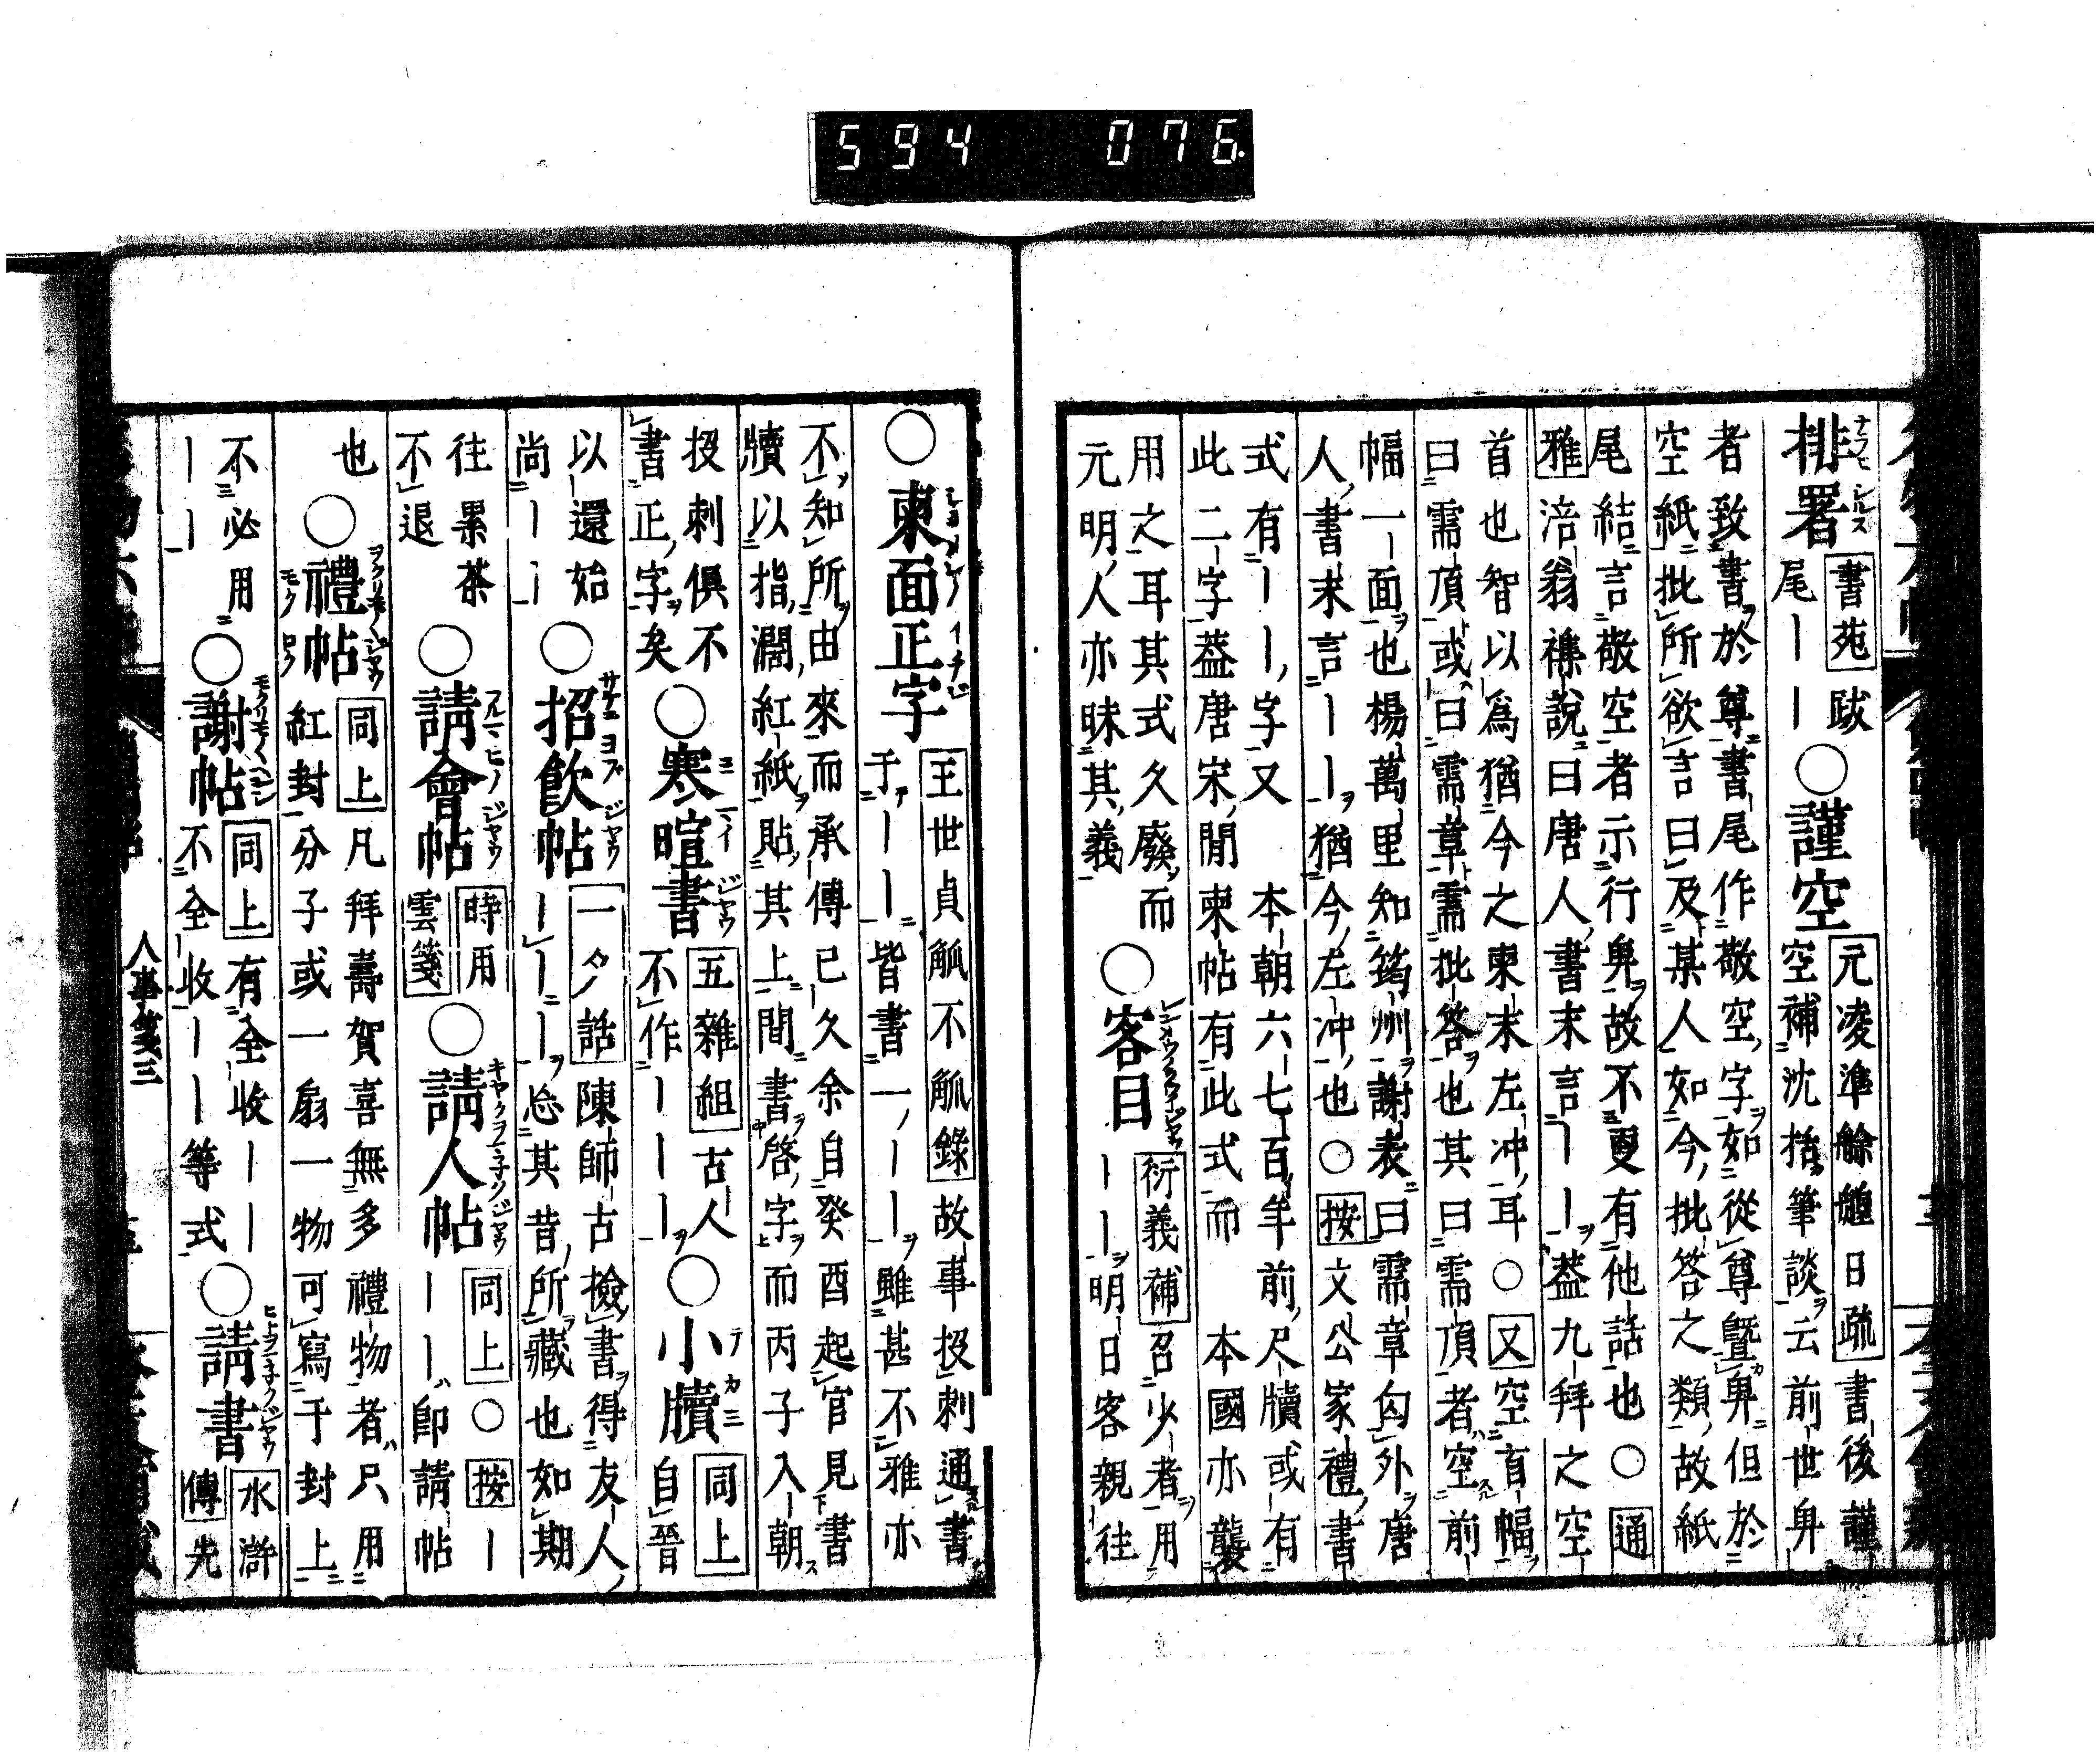 594 076
排署 書苑 跋尾｜｜ ○謹空 元凌準艅艎日疏 書後謹空補沈括筆談云前世卑
者致書於尊書尾作敬空字如從尊暨卑但於
空紙批所欲言曰及某人如今批答之類故紙
尾結言敬空者示行卑故不更有他話也○通
雅 涪翁襍說曰唐人書末言｜｜葢九拜之空
首也智以爲猶今之柬末左冲耳○又空首幅
曰需頂或曰需章需批答也其曰需頂者空前
幅一面也楊萬里知筠州謝表曰需章匃外唐
人書末言｜｜猶今左冲也○按文公家禮書
式有｜｜字又 本朝六七百年前尺牘或有
此二字葢唐宋間柬帖有此式而 本國亦襲
用之耳其式久廢而
元明人亦昧其義 ○客目 衍義補 召少者用｜｜明日客親往
○柬面正字 王世貞觚不觚錄 故事投刺通書于｜｜皆書一｜｜雖甚不雅亦
不知所由來而承傳已久余自癸酉起官見書
牘以指濶紅紙貼其上間書啓字而丙子入朝
投刺俱不
書正字矣 ○寒暄書 五雜組 古人不作｜｜｜ ○小牘 同上 自晉
以還始
尚｜｜ ○招飮帖 一夕話 陳師古撿書得友人｜｜｜忩其昔所藏也如期
往累茶
不退 ○請會帖 時用雲箋 ○請人帖 同上 ○按｜｜｜卽請帖
也 ○禮帖 同上 凡拜壽賀喜無多禮物者只用紅封一分子或一扇一物可寫于封上
不必用
｜｜ ○謝帖 同上 有全收｜｜不全收｜｜等式 ○請書 水滸傳 先
人事箋三